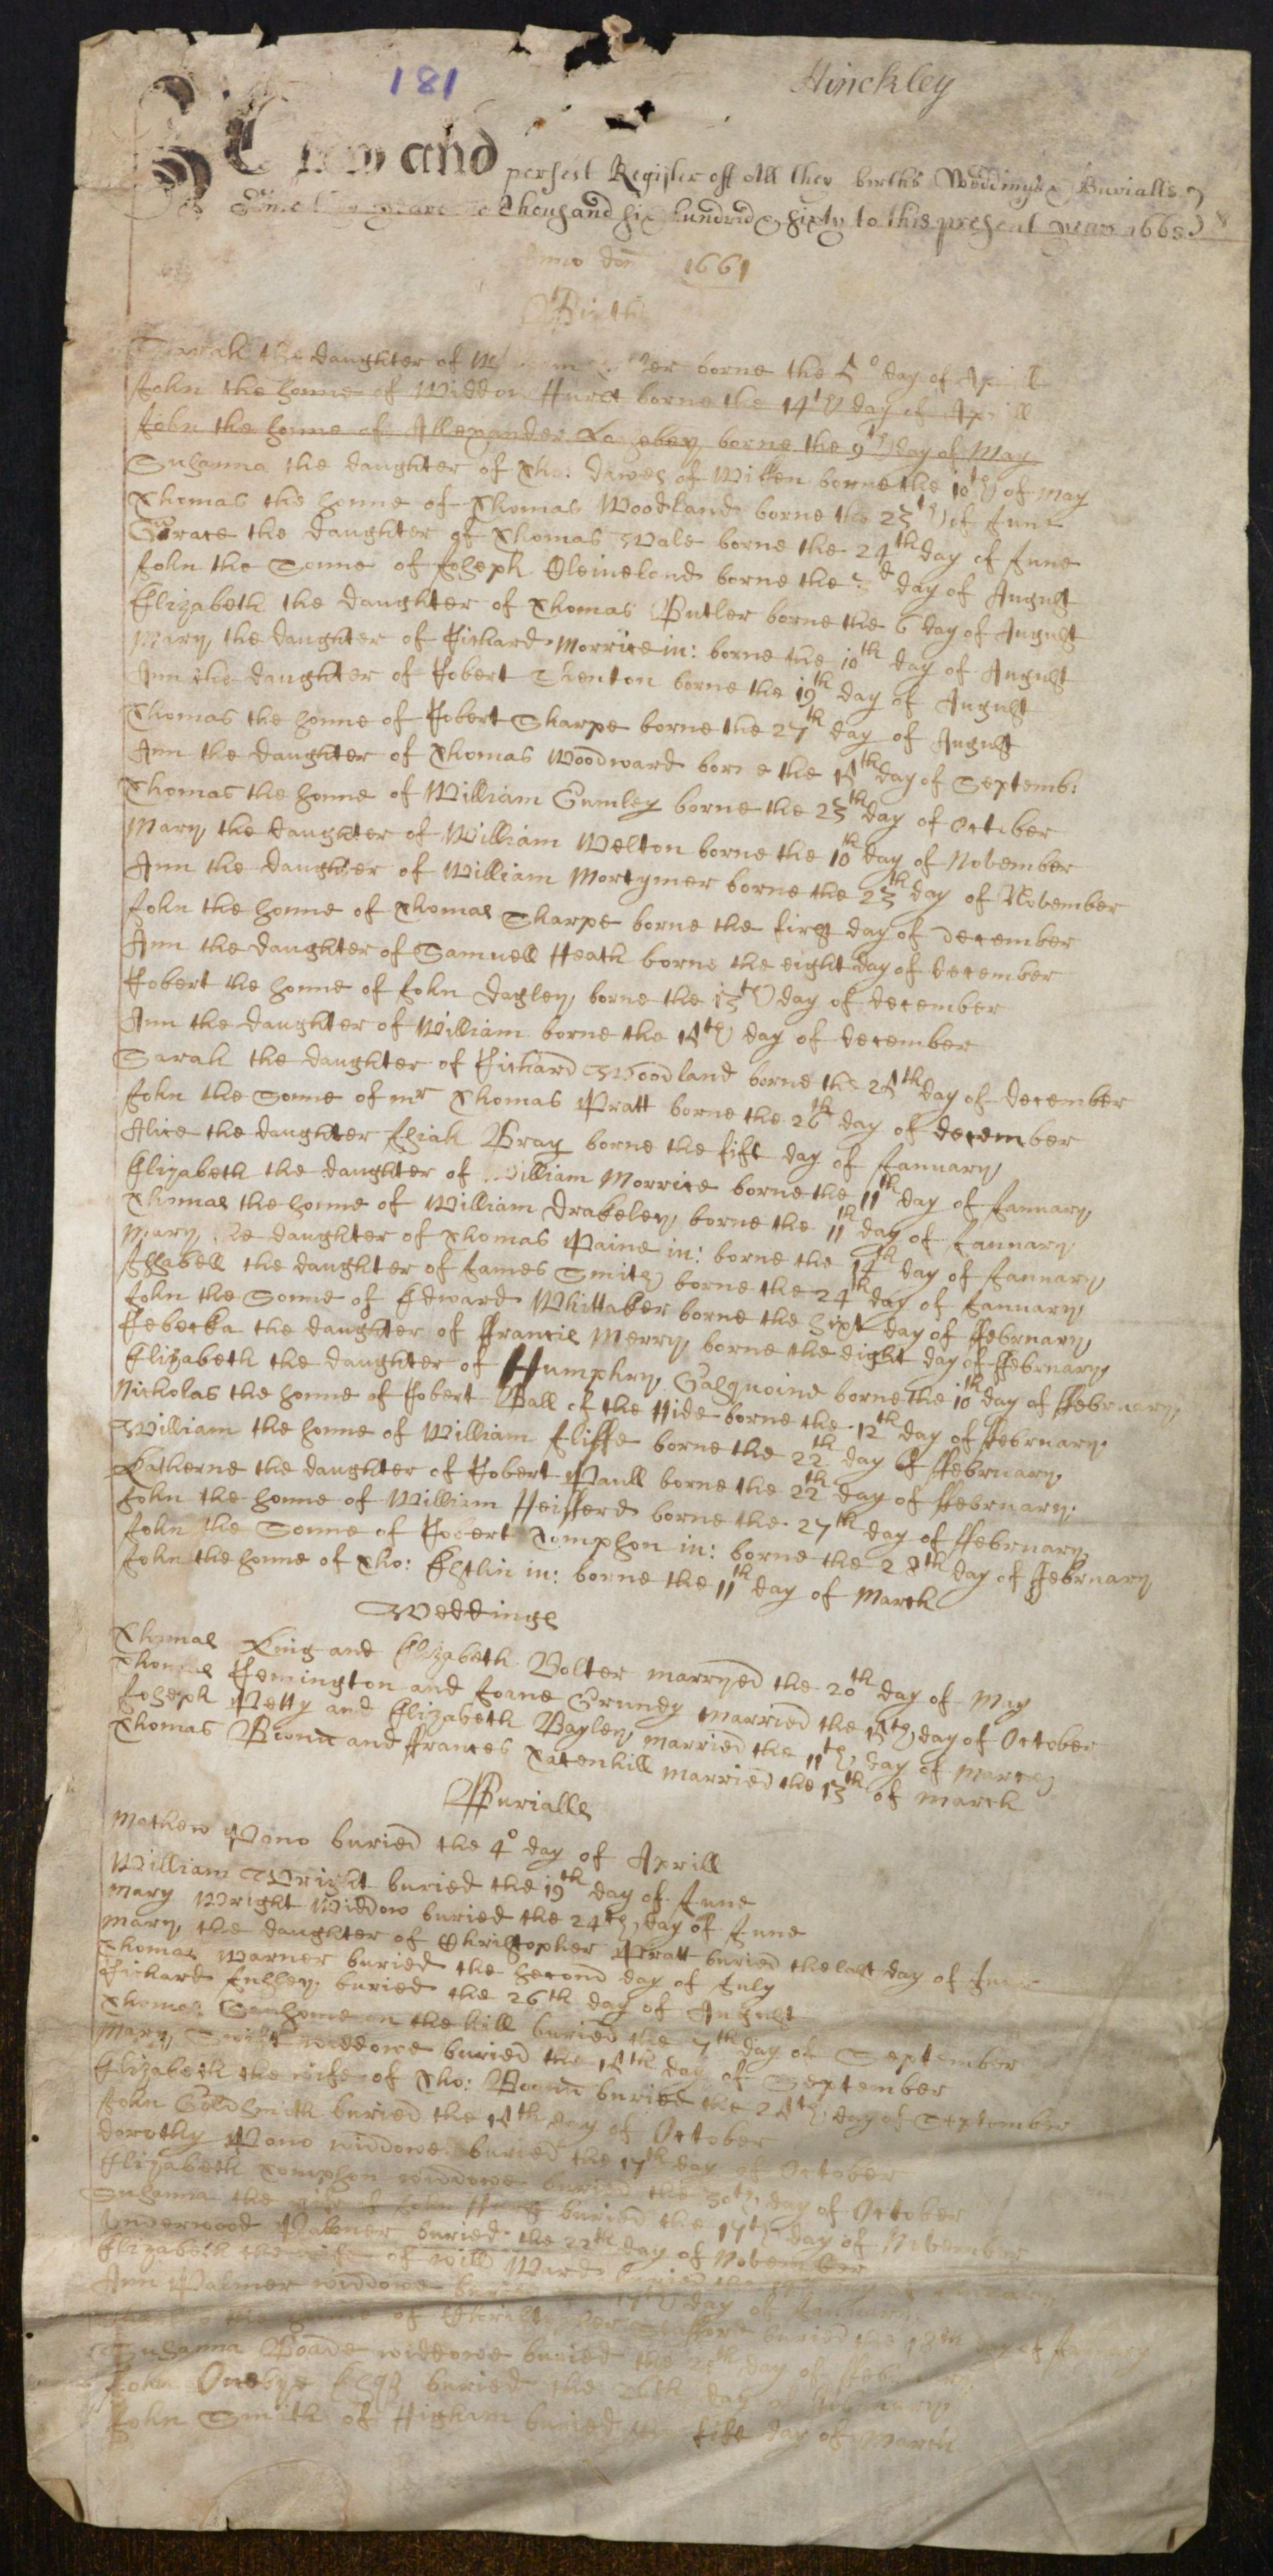 181
Hinckley
A Trew and perfect Register off All thee births Weddings & Burialls
Since the yeare Thousand six hundrid & sixty to this present yeare 166
Anno dom 1661
Births
the daughter of borne the 5º day of Aprill
John the sonne of Widdow Hurst borne the 14th day of Aprill
John the sonne of Allexander borne the 9th day of May
Susanna the daughter of Tho: Dawes of Witken borne the 10th of May
Thomas the sonne of Thomas Woodland borne the 23th of June
Grace the daughter of Thomas Wale borne the 24th day of June
John the Sonne of Joseph Cleiueland borne the day of August
Elizabeth the daughter of Thomas Butler borne the 6 day of August
Mary the daughter of Richard Morrice iu: borne the 10th day of August
Ann the daughter of Robert Trenton borne the 19th day of August
Thomas the sonne of Robert Sharpe borne the 27th day of August
Ann the daughter of Thomas Woodward borne the 15th day of Septemb:
Thomas the sonne of William Gumley borne the 23th day of October
Mary the daughter of William Welton borne the 10th day of November
Ann the daughter of William Mortymer borne the 23th day of November
John the sonne of Thomas Sharpe borne the first day of December
Ann the daughter of Samuell Heath borne the eight day of december
Robert the sonne of John Dagley borne the 13th day of december
Ann the daughter of William borne the 15th day of december
Sarah the daughter of Richard Woodland borne the 25th day of december
John the Sonne of mr Thomas Pratt borne the 26th day of december
Alice the daughter Esiah Bray borne the fift day of January
Elizabeth the daughter of William Morrice borne the 11th day of January
Thomas the sonne of William Drakeley borne the 11th day of January
Mary the daughter of Thomas Paine iu: borne the day of January
Issabell the daughter of James Smith borne the 24th day of January
John the Sonne of Edward Whittaker borne the sixt day of ffebruary
Rebecka the daughter of ffrancis Merry borne the eight day of ffebruary
Elizabeth the daughter of Humphry Gasquoine borne the 10th day of ffebruary
Nicholas the sonne of Robert Ball of the Hide borne the 12th day of ffebruary
William the sonne of William Iliffe borne the 22th day of ffebruary
Katherne the daughter of Robert Paull borne the 22th day of ffebruary
John the sonne of William Heifford borne the 27th day of ffebruary
John the Sonne of Robert Tompson iu: borne the 28th day of ffebruary
John the sonne of Tho: Estlin iu: borne the 11th day of March
Weddings
Thomas King and Elizabeth Bolter marryed the 20th day of May
Thomas Remington and Joane Grundy married the 15th day of October
Joseph Petty and Elizabeth Bagley married the 11th day of March
Thomas and ffrances Tatenhill married the 13th of March
Burialls
Mathew Pono buried the 4º day of Aprill
William Wright buried the 19th day of June
Mary Wright Widdow buried the 24th day of June
Mary the daughter of Christopher Pratt buried the last day of June
Thomas Warner buried the second day of July
Richard buried the 26th day of August
Thomas Sansome on the hill buried the 7th day of September
Mary Swift widdowe buried the 15th day of September
Elizabeth the wife of Tho: buried the 25th day of September
John Goldsmith buried the 15th day of October
Dorothy Pono widdowe buried the 17th day of October
Elizabeth Tompson widdowe buried the 30th day of October
Susanna the wife of John buried the 17th day of November
Underwood Palmer buried the 22th day of November
Elizabeth the wife of Will Ward
Ann Palmer widdowe day of January
the of Christopher Stafford buried the 18th day of January
Susanna Boade widdowe buried the day of ffebruary
John Onebye Esqr buried the 26th day of ffebruary
John Smith of Higham buried the fift day of March